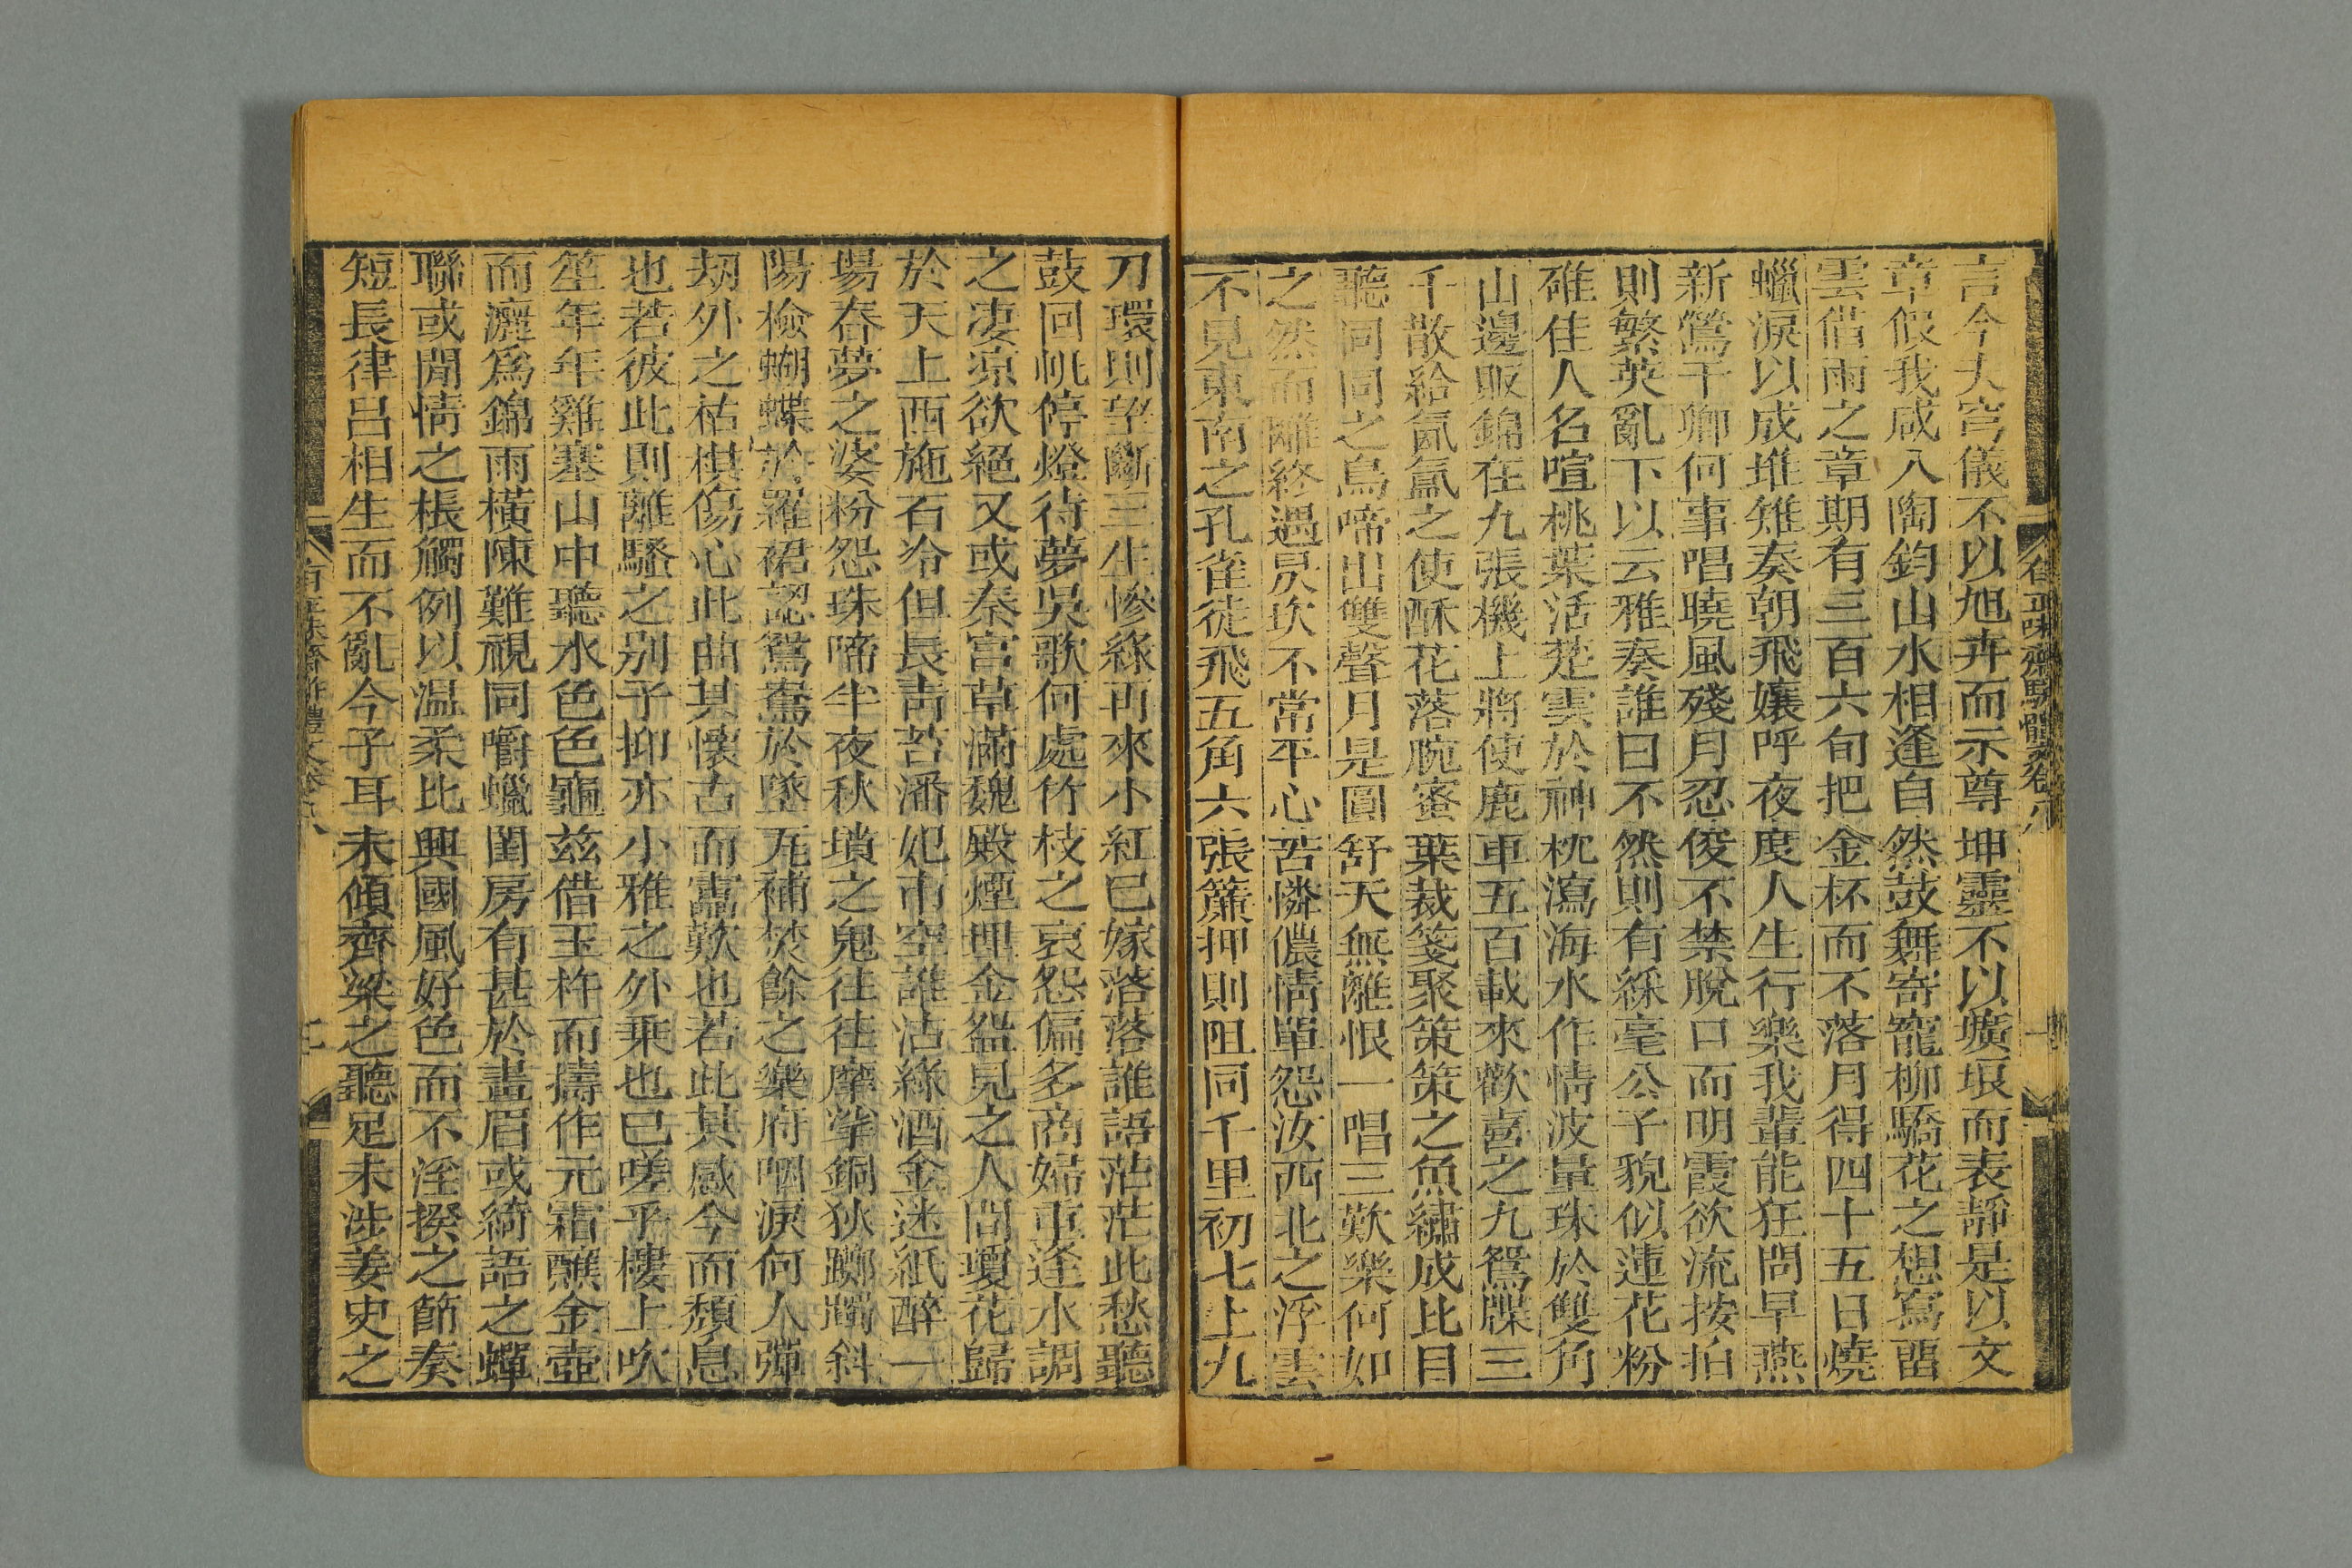 有正味齋駢體文卷八
言今大穹儀不以旭卉而示尊坤靈不以壙垠而表靜是以文
章假我咸入陶鈞山水相逢自然鼓舞寄寵柳驕花之想寫畱
雲借雨之章期有三百六旬把金杯而不落月得四十五日燒
蠟淚以成堆雉奏朝飛孃呼夜度人生行樂我輩能狂問早燕
新鶯干卿何事唱曉風殘月忍俊不禁脫口而明霞欲流按拍
則繁英亂下以云雅奏誰曰不然則有綵毫公子貌似蓮花粉
碓佳人名喧桃葉活楚雲於神枕瀉海水作情波量珠於雙角
山邊販錦在九張機上將使鹿車五百載來歡喜之九鴛牒三
千散給氤氳之使酥花落腕蜜葉裁箋聚策策之魚繡成比目
聽同同之鳥啼出雙聲月是圓舒天無離恨一唱三歎樂何如
之然而離終遇炅坎不常平心苦憐儂情單怨汝西北之浮雲
不見東南之孔雀徒飛五角六張簾押則阻同千里初七上九
刀環則望斷三生慘綠再來小紅已嫁落落誰語茫茫此愁聽
鼓回帆停燈待夢吳歌何處竹枝之哀怨偏多商婦重逢水調
之淒凉欲絕又或秦宮草滿魏殿煙埋金盌見之人間瓊花歸
於天上西施石冷但長靑苔潘妃市空誰沽綠酒金迷紙醉一
場春夢之婆粉怨珠啼半夜秋墳之鬼往往摩挲銅狄躑躅斜
陽檢蝴蝶於羅裙認鴛鴦於墜瓦補焚餘之樂府咽淚何人彈
劫外之枯棋傷心此曲其懷古而寱歎也若此其感今而頹息
也若彼此則離騷之别子抑亦小雅之外乘也已嗟乎樓上吹
笙年年雞塞山中聽水色色龜茲借玉杵而擣作元霜醮金壺
而灑爲錦雨橫陳難視同嚼蠟閨房有甚於畫眉或綺語之蟬
聯或閒情之棖觸例以温柔比興國風好色而不淫揆之節奏
短長律呂相生而不亂今子耳未傾齊梁之聽足未涉姜史之